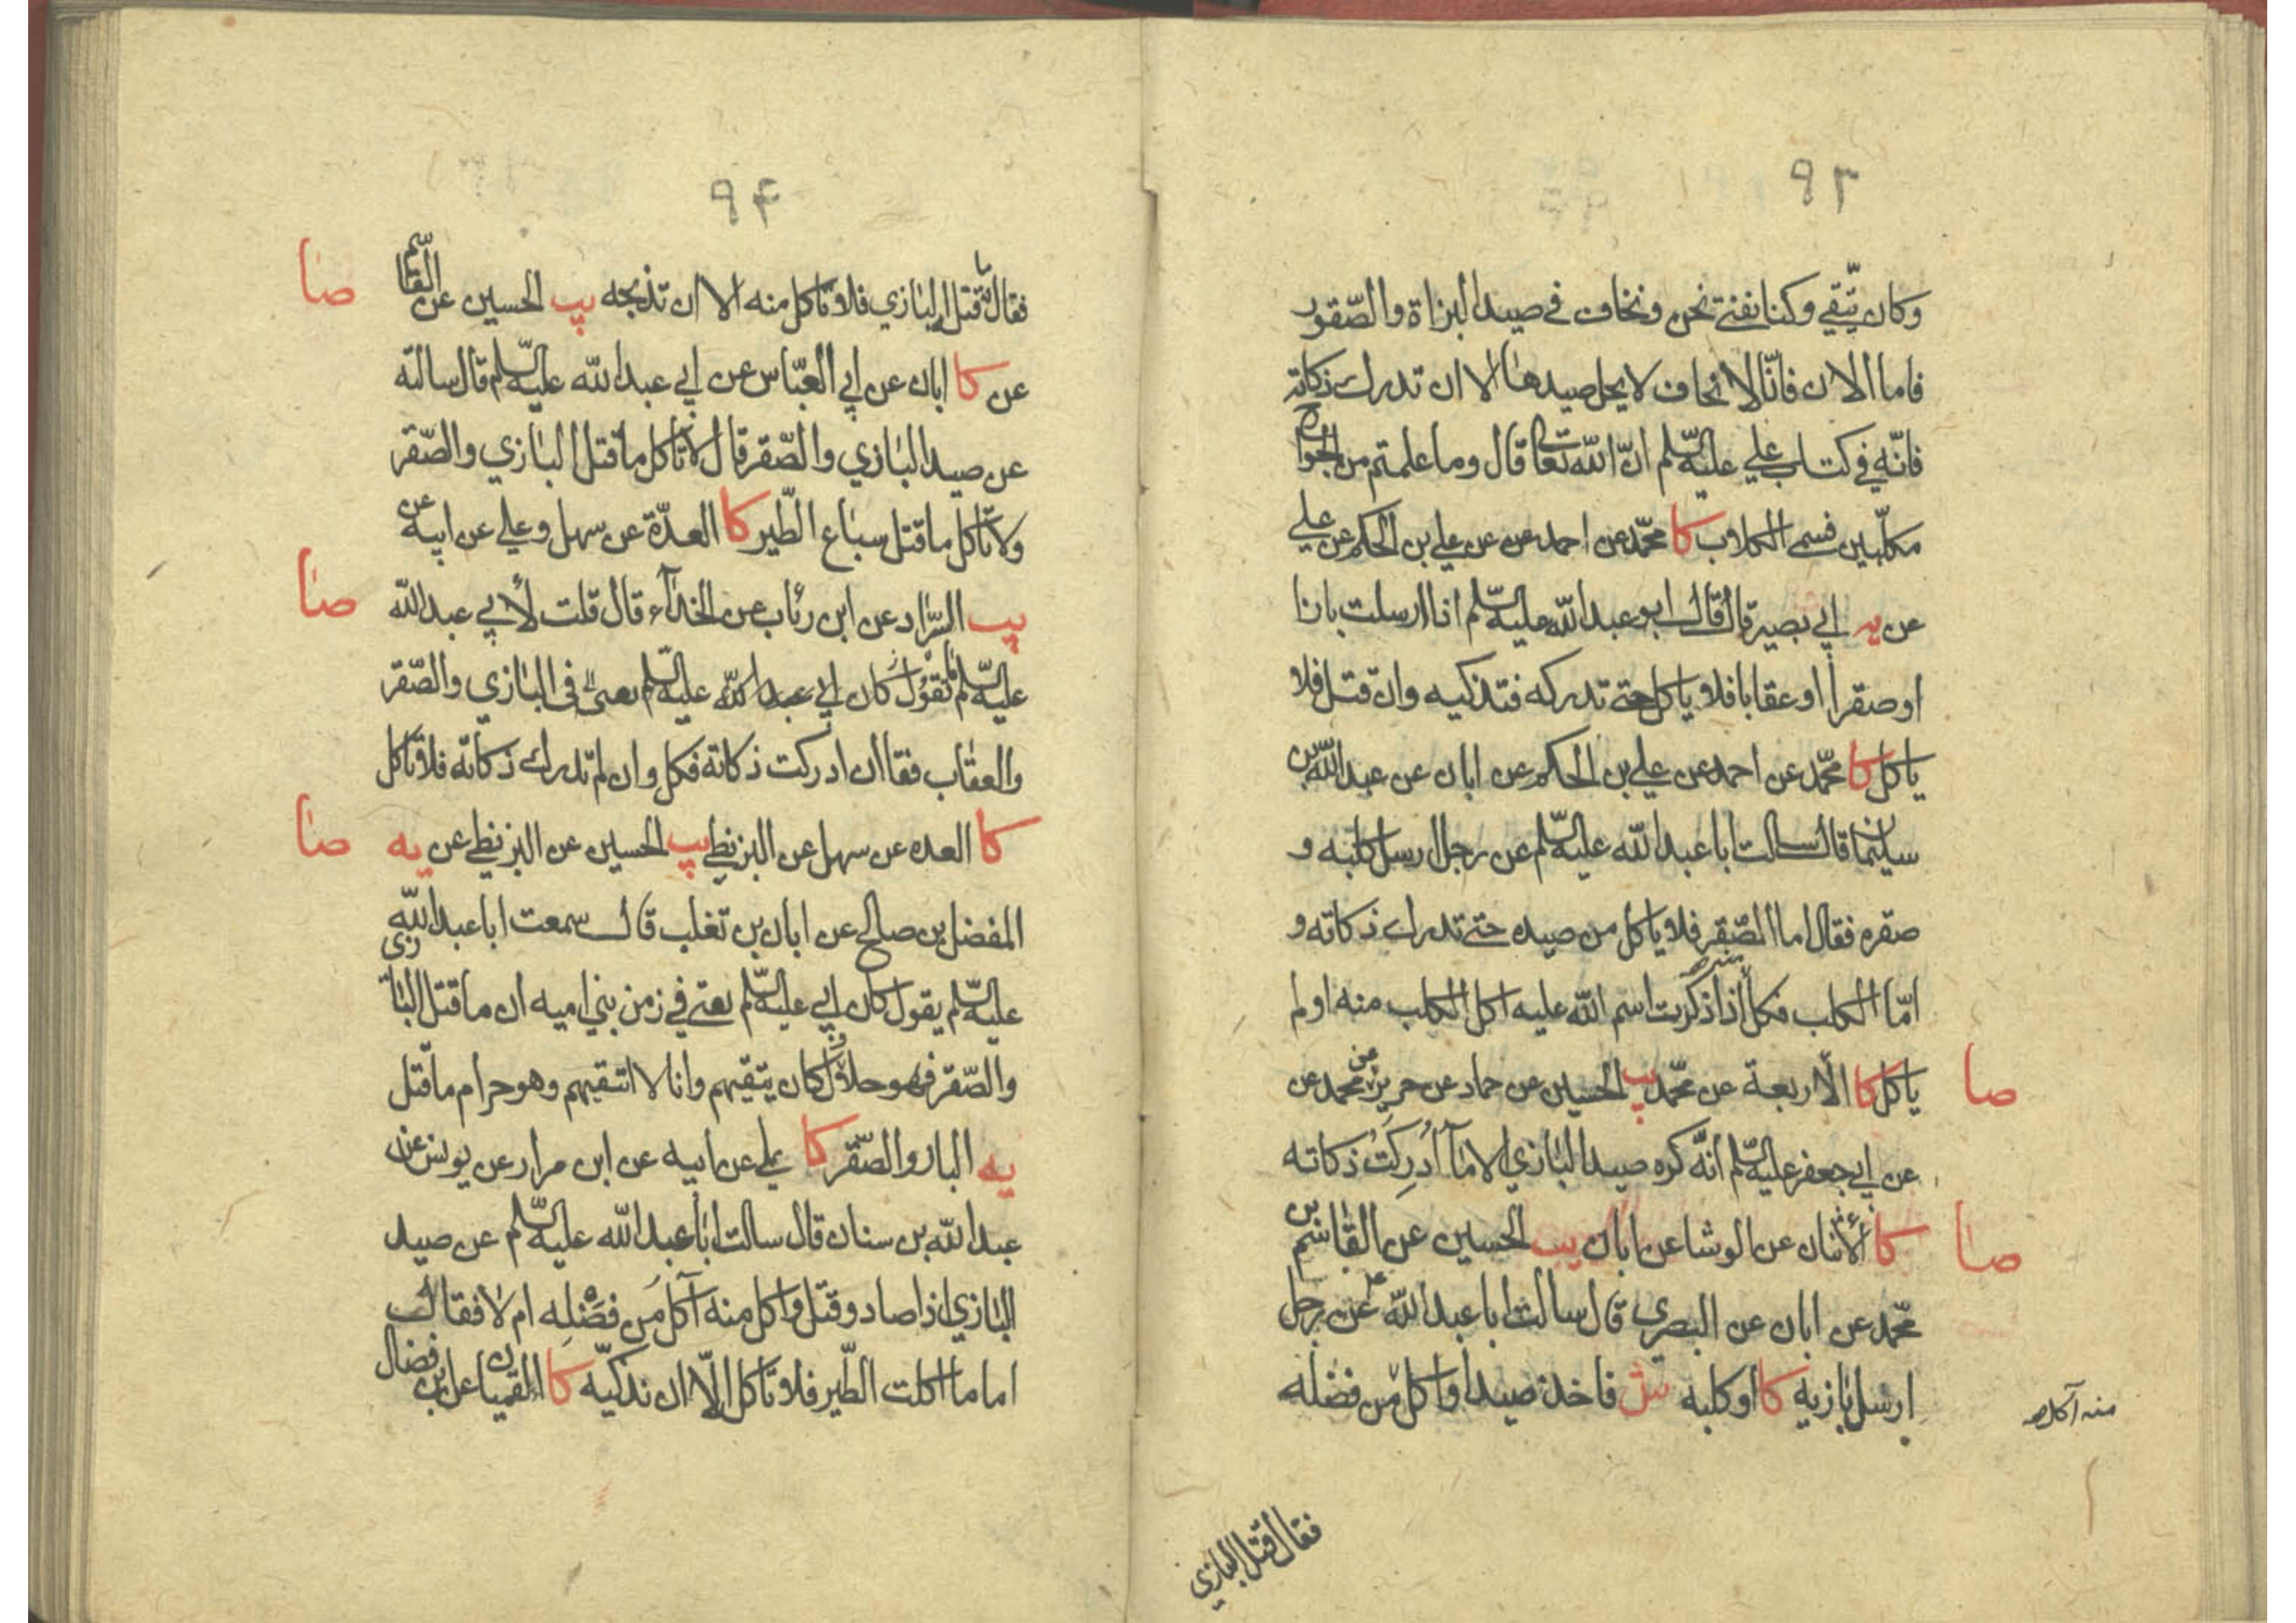 ٩٣
وكان يتّقي وكنا نفتي نحن ونخاف في صيد البزاة والصّقور
فاما الان فانّا لا نخاف لا يحل صيدها الا ان تدرك ذكاته
فانّه في كتاب علي عليه السّلم انّ اللّه تعا قال وما علمتم من الجوارح
مكلّبين فسمى الكلاب كا محمّد عن احمد عن علي بن الحكم عن علي
عن يه ابي بصير قال قال ابو عبد اللّه عليه السّلم اذا ارسلت بازا
او صقرا او عقابا فلا ياكل حتى تدركه فتذكيه وان قتل فلا
ياكل كا محمّد عن احمد عن علي بن الحكم عن ابان عن عبد اللّه بن
سليمان قال سالت ابا عبد اللّه عليه السّلم عن رجل ارسل كلبه و
صقره فقال اما الصّقر فلا ياكل من صيده حتى تدرك ذكاته و
امّا الكلب فكل منه اذا ذكرت اسم اللّه عليه اكل الكلب منه او لم
ياكل كا الاربعة عن محمّد يب الحسين عن حماد عن حريز عن محمد عن صا
عن ابي جعفر عليه السّلم انّه كره صيد البازي الا ما ادركت ذكاته
كا الاثنان عن الوشا عن ابان يب الحسين عن القاسم بن صا
محمّد عن ابان عن البصري قال سالت ابا عبد اللّه ع عن رجل
ارسل بازيه كا او كلبه ش فاخذ صيدا واكل من فضله
منه آكل
فقال ما قتل البازي
٩۴
فقال ما قتل البازي فلا تاكل منه الا ان تذبحه يب الحسين عن القاسم صا
عن كا ابان عن ابي العبّاس عن ابي عبد اللّه عليه السّلم قال سالته
عن صيد البازي والصّقر قال لا تاكل ما قتل البازي والصّقر
ولا تاكل ما قتل سباع الطّير كا العدّة عن سهل وعلي عن ابيه عن
يب السرّاد عن ابن رئاب عن الحذآء قال قلت لأبي عبد اللّه صا
عليه السّلم ما تقول كان ابي عبد اللّه عليه السّلم يعني في البازي والصّقر
والعقاب فقا ان ادركت ذكاته فكل وان لم تدرك ذكاته فلا تاكل
كا العده عن سهل عن البزنطي يب الحسين عن البزنطي عن يه صا
المفضل بن صالح عن ابان بن تغلب قال سمعت ابا عبد اللّه
عليه السّلم يقول كان ابي عليه السّلم يفتي في زمن بني اميه ان ما قتل البازي
والصّقر فهو حلال وكان يتقيهم وانا لا اتقيهم وهو حرام ما قتل
يه الباز والصّقر كا علي عن ابيه عن ابن مرار عن يونس عن
عبد اللّه بن سنان قال سالت ابا عبد اللّه عليه السّلم عن صيد
البازي اذا صاد وقتل واكل منه آكل من فضله ام لا فقال
اما ما اكلت الطّير فلا تاكل الّا ان تذكيّه كا القميان عن ابن فضال